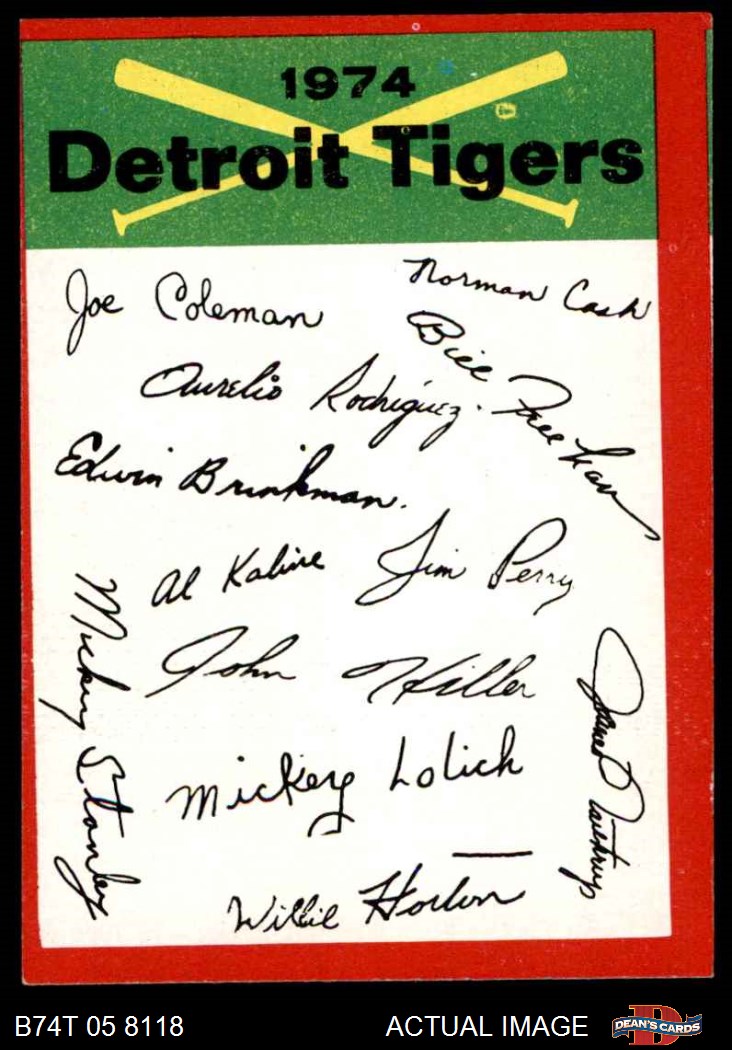 1974
Detroit Tigers
Joe Coleman
Norman Cash
Bill Freehan
Aurelio Rodriguez.
Edwin Brinkman.
Al Kaline
Jim Perry
Mickey Stanley
John Hiller
James Northrup
Mickey Lolich
Willie Horton
B74T 05 8118
ACTUAL IMAGE
D
DEAN'S CARDS